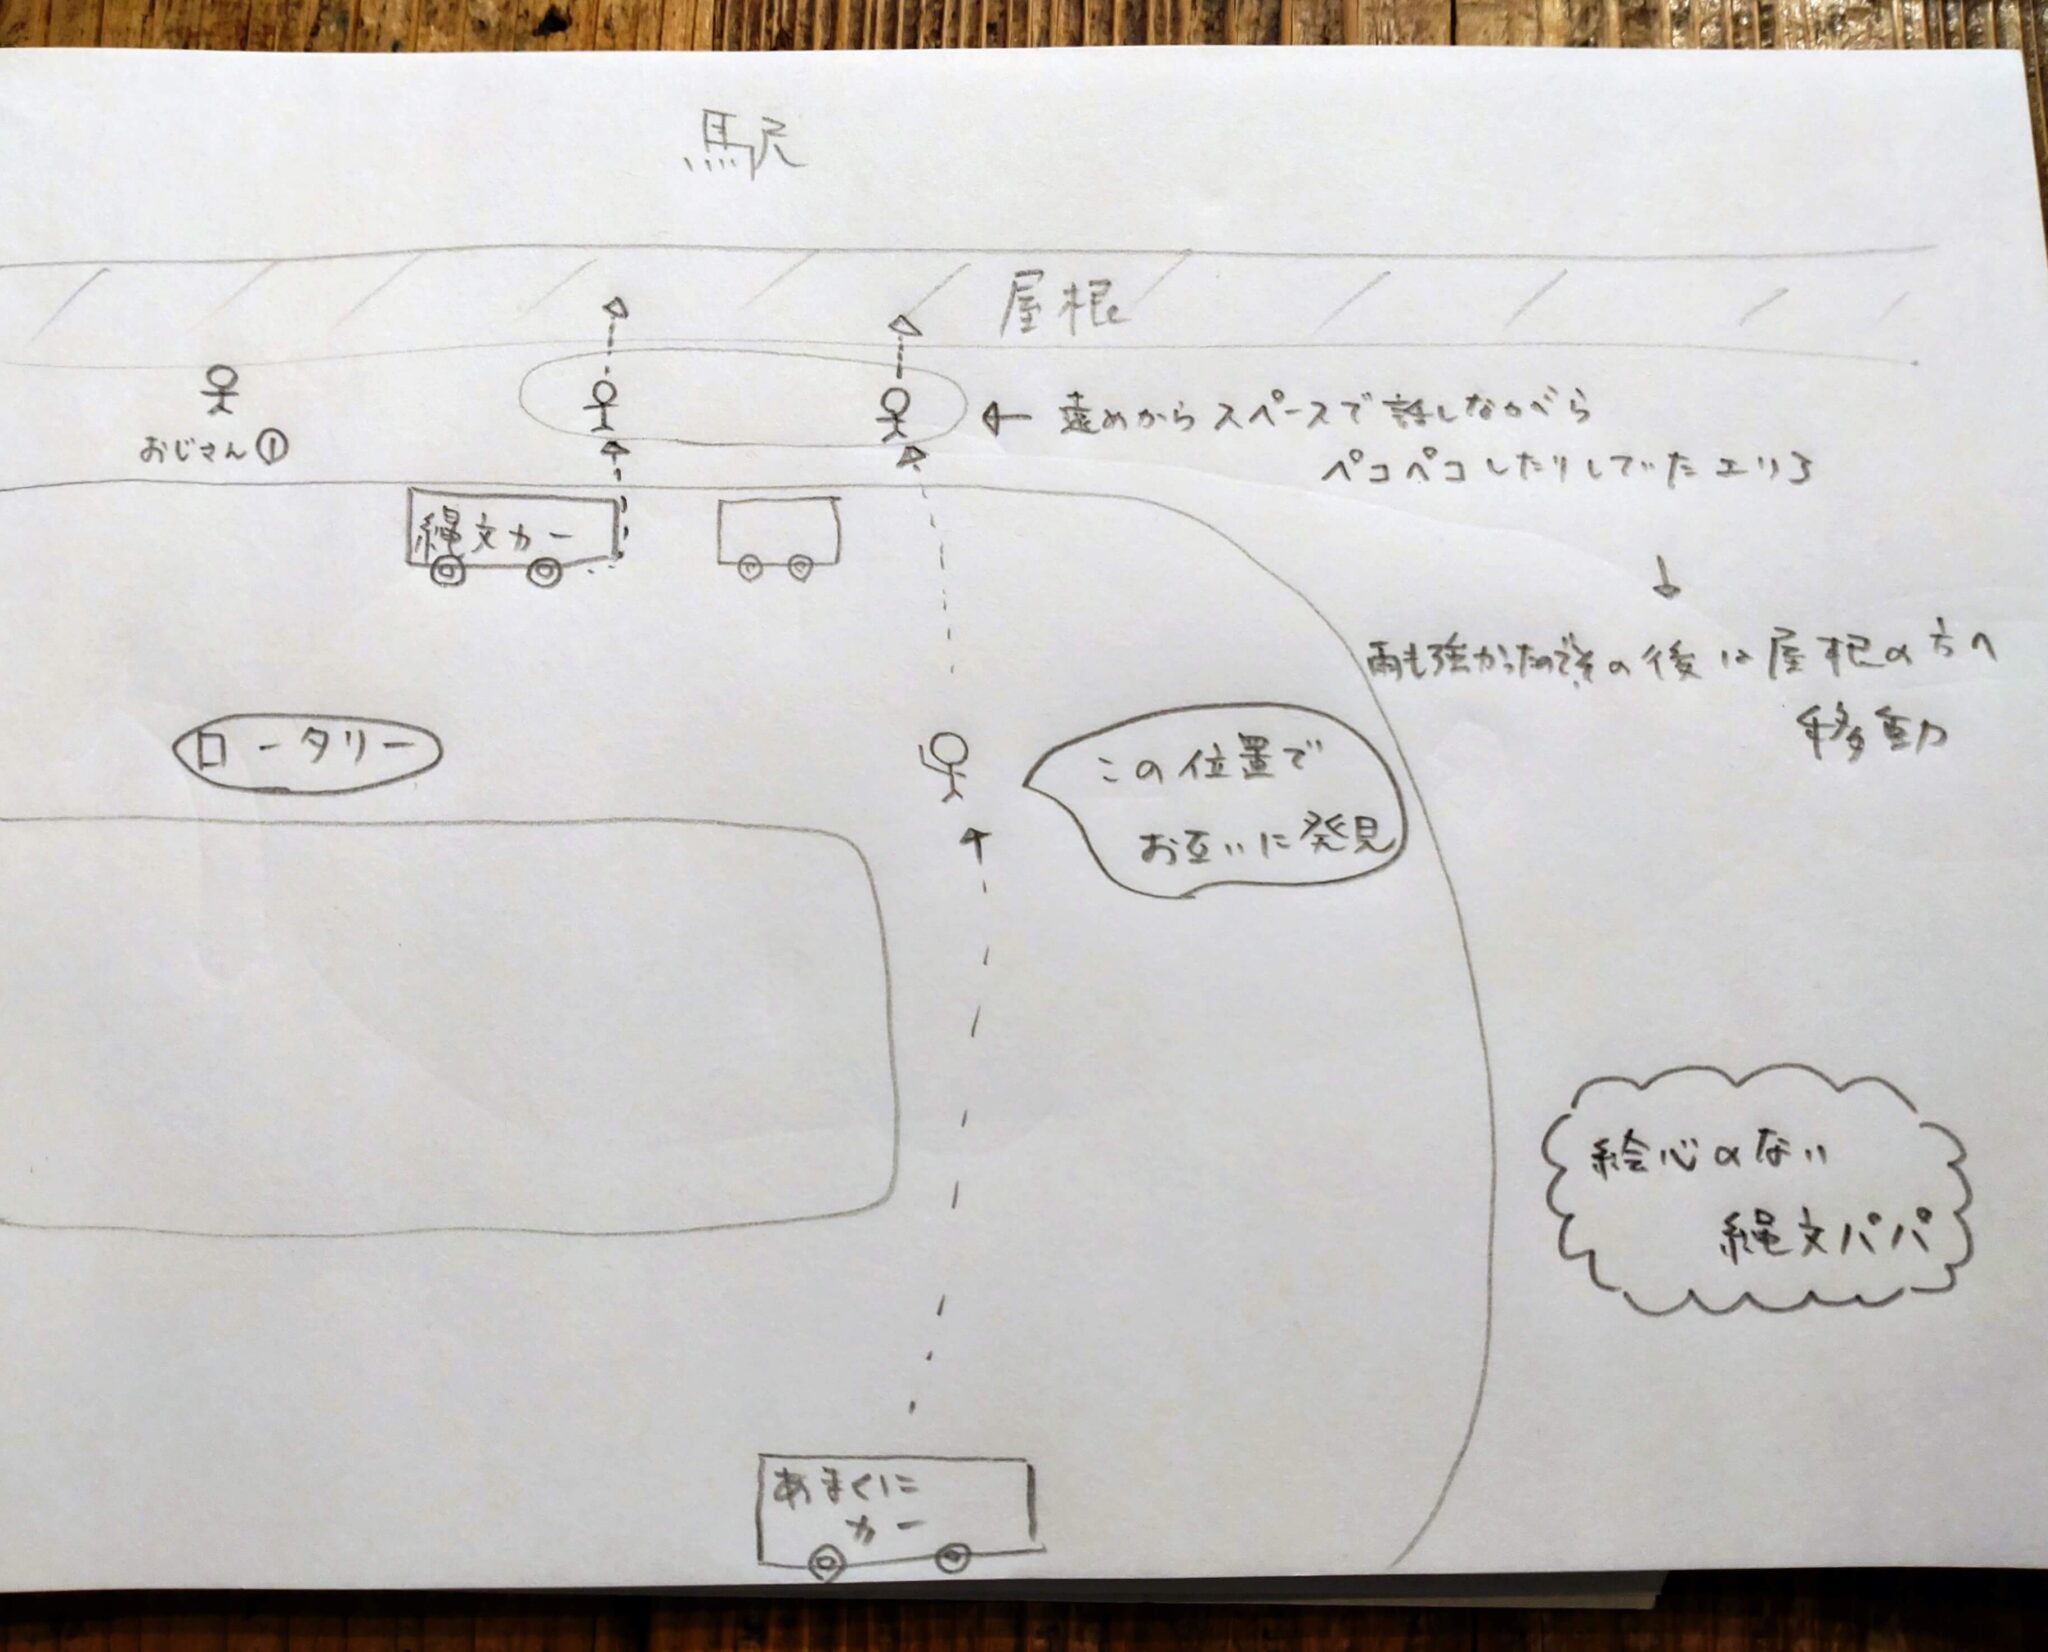 駅
屋根
おじさん①
← 遠めからスペースで話しながら
ペコペコしたりしていたエリア
↓
雨も強かったのでその後は屋根の方へ
移動
縄文カー
ロータリー
この位置で
お互いに発見
絵心のない
縄文パパ
あまくに
カー